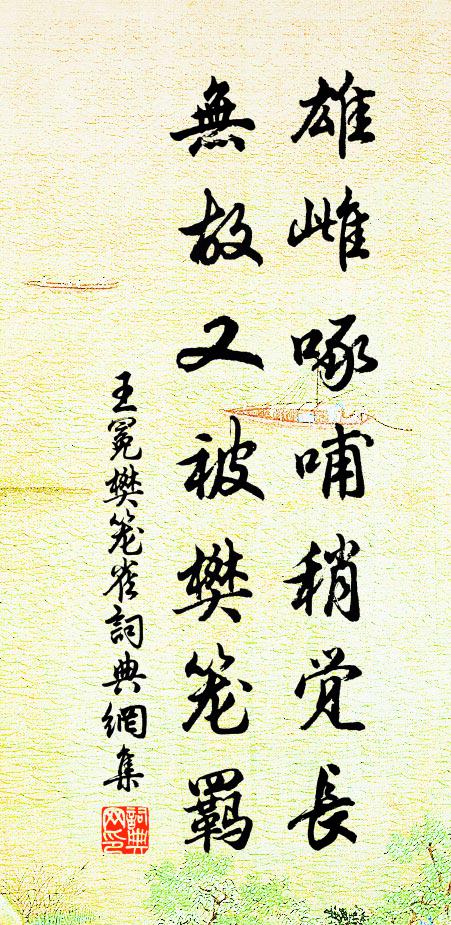 雄雌啄哺稍觉長
無故又被樊笼羁
王冕樊笼雀詞典網集
詞典网印